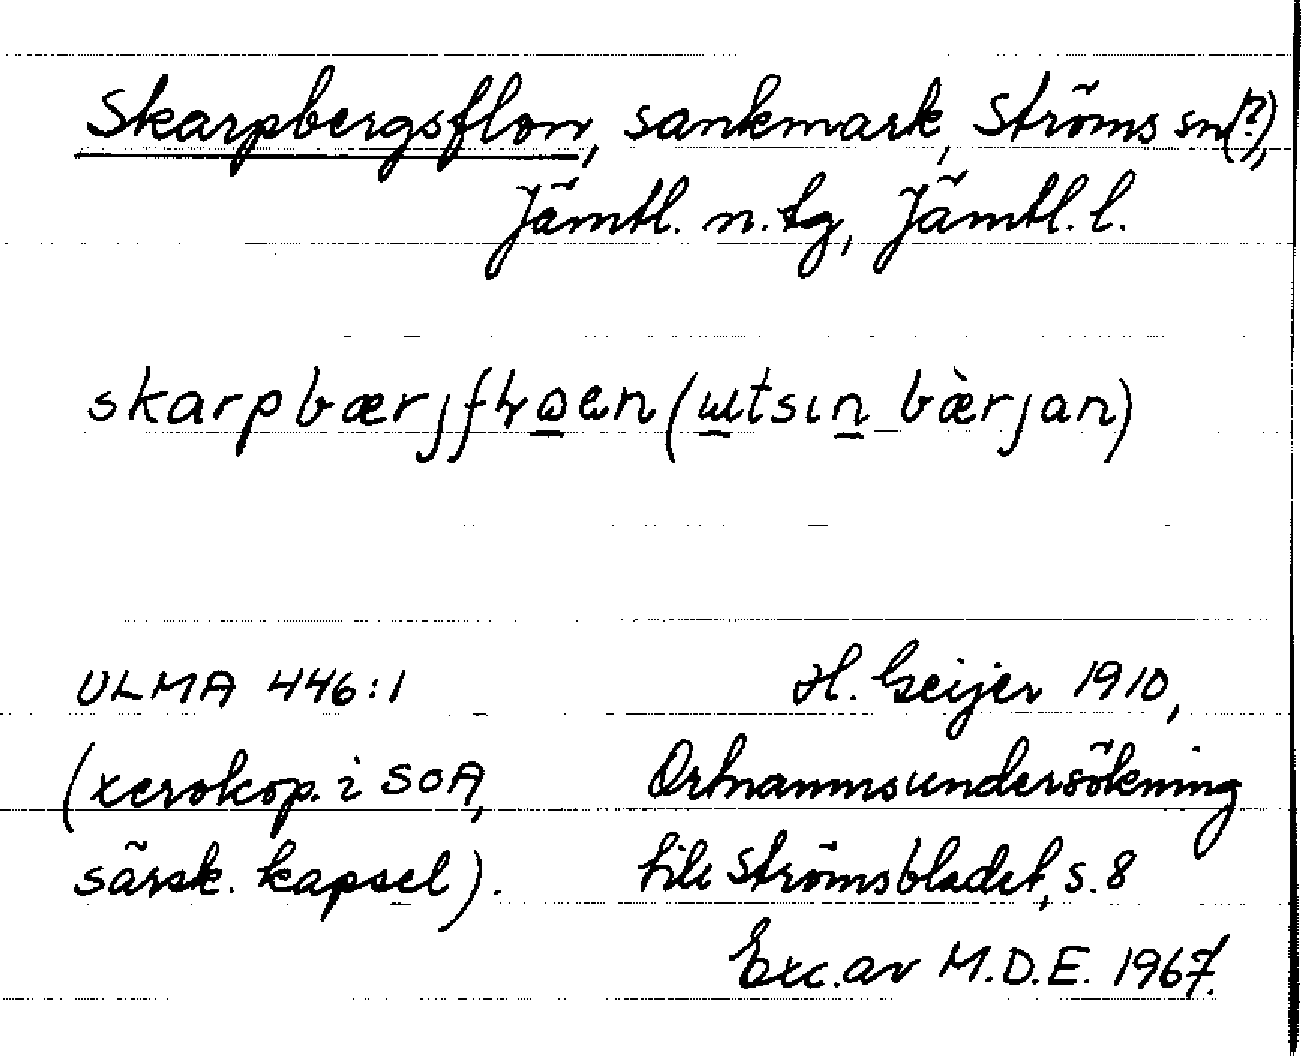 Skarpbergsflon, sankmark, Ströms sn(?),
Jämtl. n. tg, Jämtl. l.
skarpbærjfɬɷen (ɯtsın bærjan)
ULMA 446:1
(xerokop. i SOA,
särsk. kapsel).
H. Geijer 1910,
Ortnamnsundersökning
till Strömsbladet, s. 8
Exc. av M.D.E. 1967.